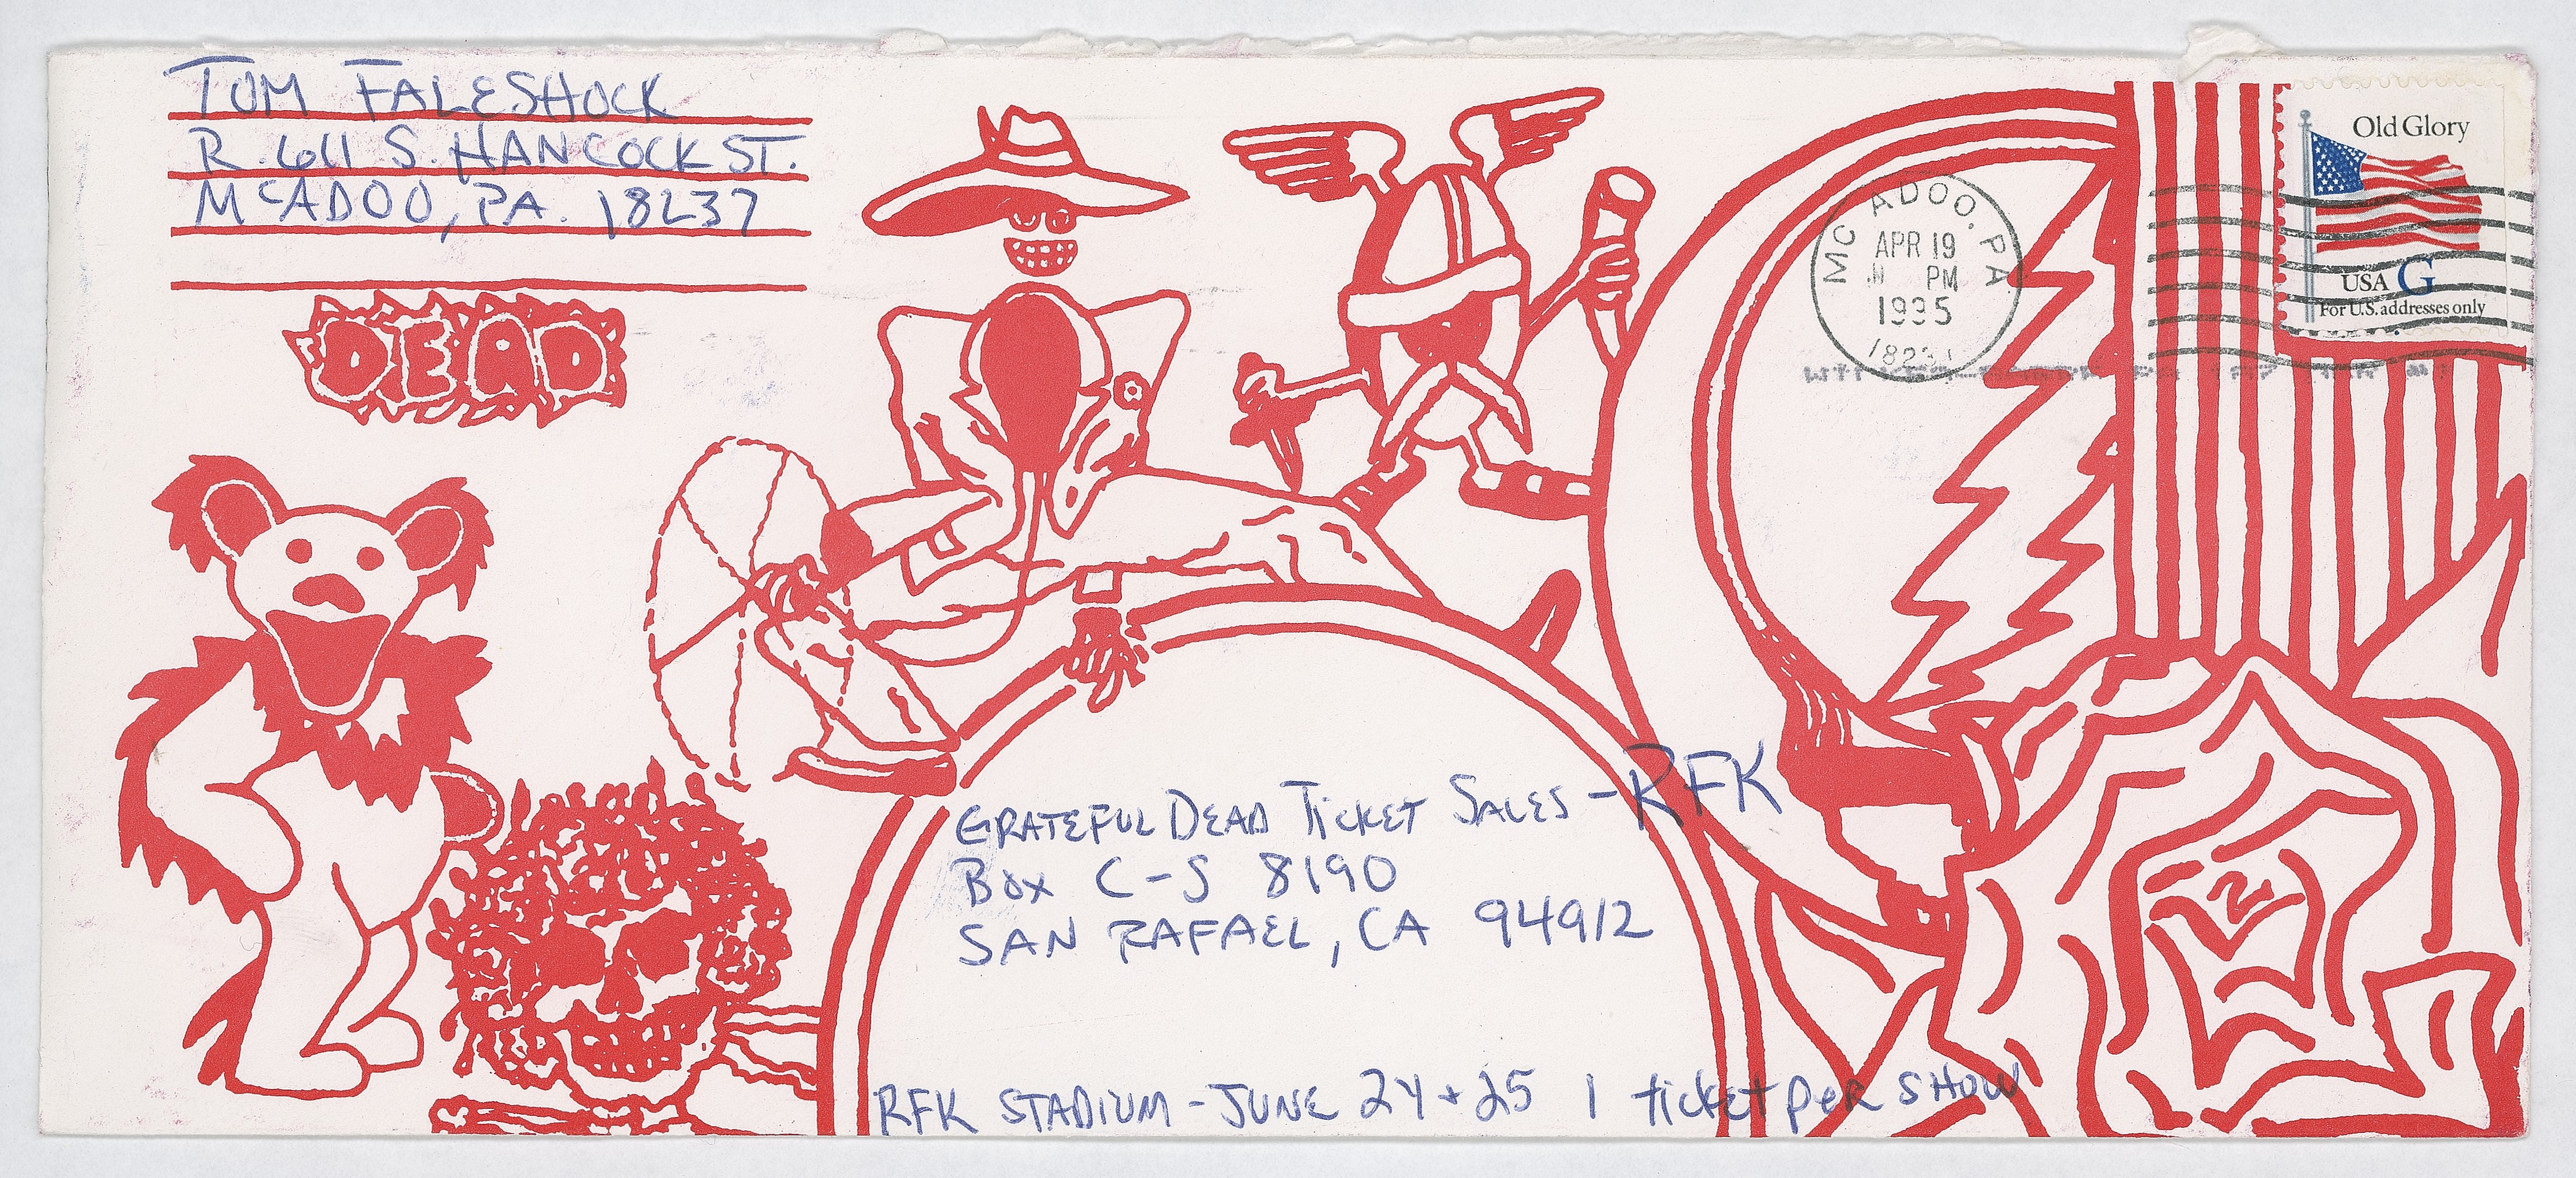 TOM FALESHOCK
R. 611 S. HANCOCK ST.
MCADOO, PA. 18237
DEAD
Old Glory
USA G
For U.S. addresses only
MC ADOO, PA
APR 19
PM
1995
GRATEFUL DEAD TICKET SALES - RFK
BOX C-S 8190
SAN RAFAEL, CA 94912
RFK STADIUM - JUNE 24 + 25 1 ticket per show